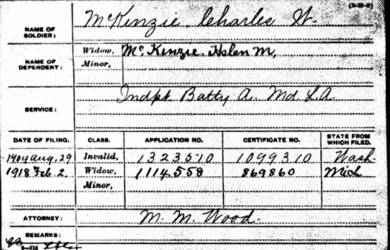 (3-216-2)
NAME OF SOLDIER: McKenzie, Charles W.
NAME OF DEPENDENT: Widow, McKenzie, Helen M,
Minor,
SERVICE: Indpt Batty A. Md L.A.
DATE OF FILING. CLASS. APPLICATION NO. CERTIFICATE NO. STATE FROM WHICH FILED.
1904 Aug. 29 Invalid, 1323510 1099310 Wash.
1918 Feb. 2. Widow, 1114558 869860 Mich
Minor,
ATTORNEY: M. M. Wood.
REMARKS: